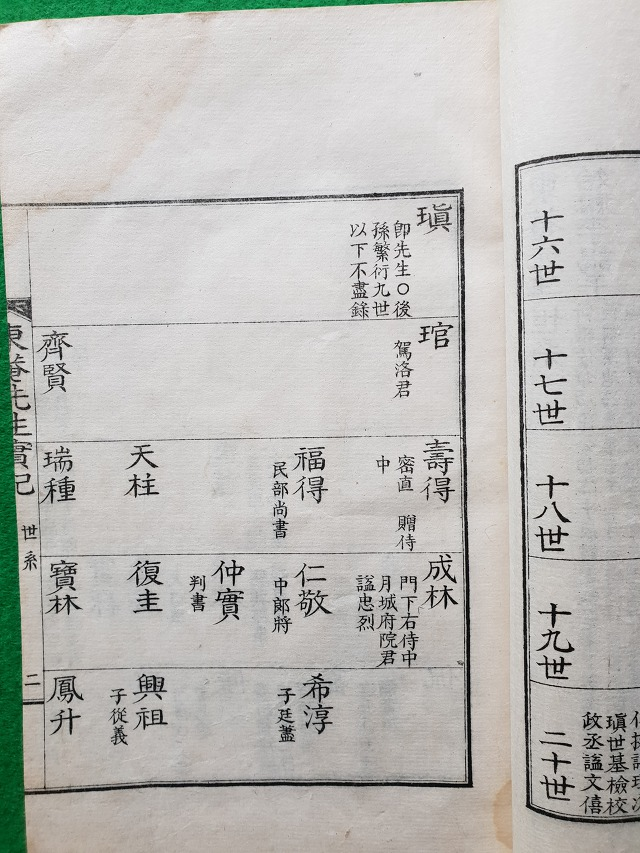 十六世
十七世
十八世
十九世
二十世
瑱世基檢校
政丞謚文僖
瑱
卽先生○後
孫繁衍九世
以下不盡錄
琯
駕洛君
齊賢
壽得
密直 贈侍
中
福得
民部尚書
天柱
瑞種
成林
門下右侍中
月城府院君
謚忠烈
仁敬
中郞將
仲實
判書
復圭
寶林
希淳
子廷藎
興祖
子從義
鳳升
東菴先生實記
世系
二